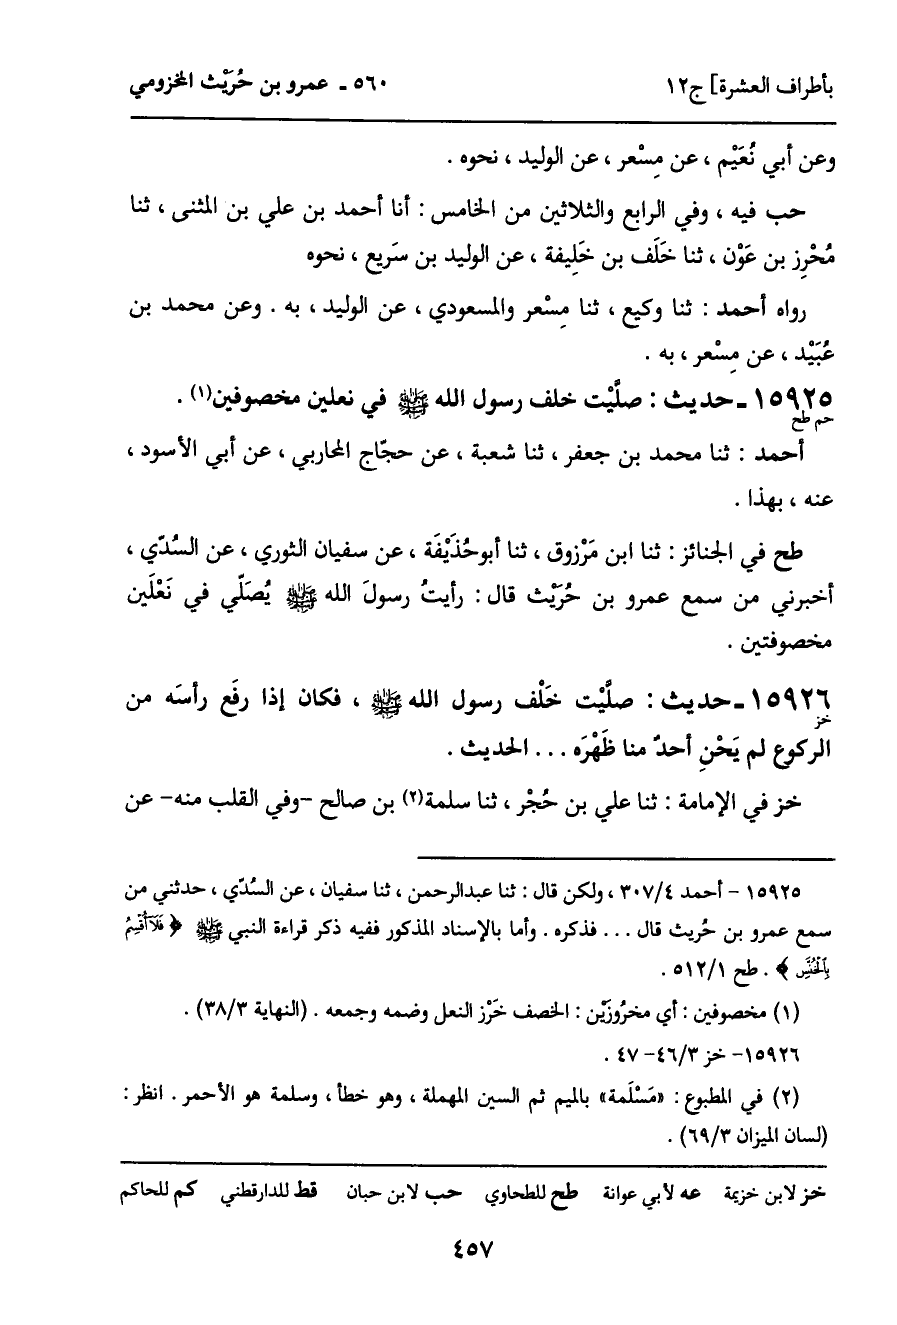 بأطراف العشرة] ج١٢
٥٦٠ ـ عمرو بن حُرَيْث المخزومي
وعن أبي نُعَيْم ، عن مِسْعر ، عن الوليد ، نحوه .
حب فيه ، وفي الرابع والثلاثين من الخامس : أنا أحمد بن علي بن المثنى ، ثنا
مُحْرِز بن عَوْن ، ثنا خَلَف بن خَلِيفة ، عن الوليد بن سَريع ، نحوه
رواه أحمد : ثنا وكيع ، ثنا مِسْعر والمسعودي ، عن الوليد ، به . وعن محمد بن
عُبَيْد ، عن مِسْعر ، به .
١٥٩٢٥ ـ حديث : صلَّيْت خلف رسول الله ﷺ في نعلين مخصوفين(١) .
حم طح
أحمد : ثنا محمد بن جعفر ، ثنا شعبة ، عن حجّاج المحاربي ، عن أبي الأسود ،
عنه ، بهذا .
طح في الجنائز : ثنا ابن مَرْزوق ، ثنا أبوحُذَيْفَة ، عن سفيان الثوري ، عن السُدّي ،
أخبرني من سمع عمرو بن حُرَيْث قال : رأيتُ رسولَ الله ﷺ يُصَلّي في نَعْلَين
مخصوفتين .
١٥٩٢٦ ـ حديث : صلَّيْت خَلْف رسول الله ﷺ ، فكان إذا رفَع رأسَه من
خز
الركوع لم يَحْنِ أحدٌ منا ظَهْرَه ... الحديث .
خز في الإمامة : ثنا علي بن حُجْر ، ثنا سلمة(٢) بن صالح -وفي القلب منه- عن
١٥٩٢٥ - أحمد ٣٠٧/٤ ، ولكن قال : ثنا عبدالرحمن ، ثنا سفيان ، عن السُدّي ، حدثني من
سمع عمرو بن حُريث قال ... فذكره . وأما بالإسناد المذكور ففيه ذكر قراءة النبي ﷺ ﴿ فَلَآ أُقْسِمُ
بِٱلْخُنَّسِ ﴾ . طح ٥١٢/١ .
(١) مخصوفين : أي مخرُوزَيْن : الخصف خَرْز النعل وضمه وجمعه . (النهاية ٣٨/٣) .
١٥٩٢٦- خز ٤٦/٣- ٤٧ .
(٢) في المطبوع : «مَسْلَمة» بالميم ثم السين المهملة ، وهو خطأ ، وسلمة هو الأحمر . انظر :
(لسان الميزان ٦٩/٣) .
خز لابن خزيمة عه لأبي عوانة طح للطحاوي حب لابن حبان قط للدارقطني كم للحاكم
٤٥٧